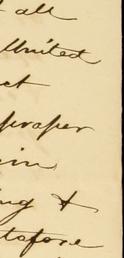 all
United
ct
proper
in
ng &
tofore